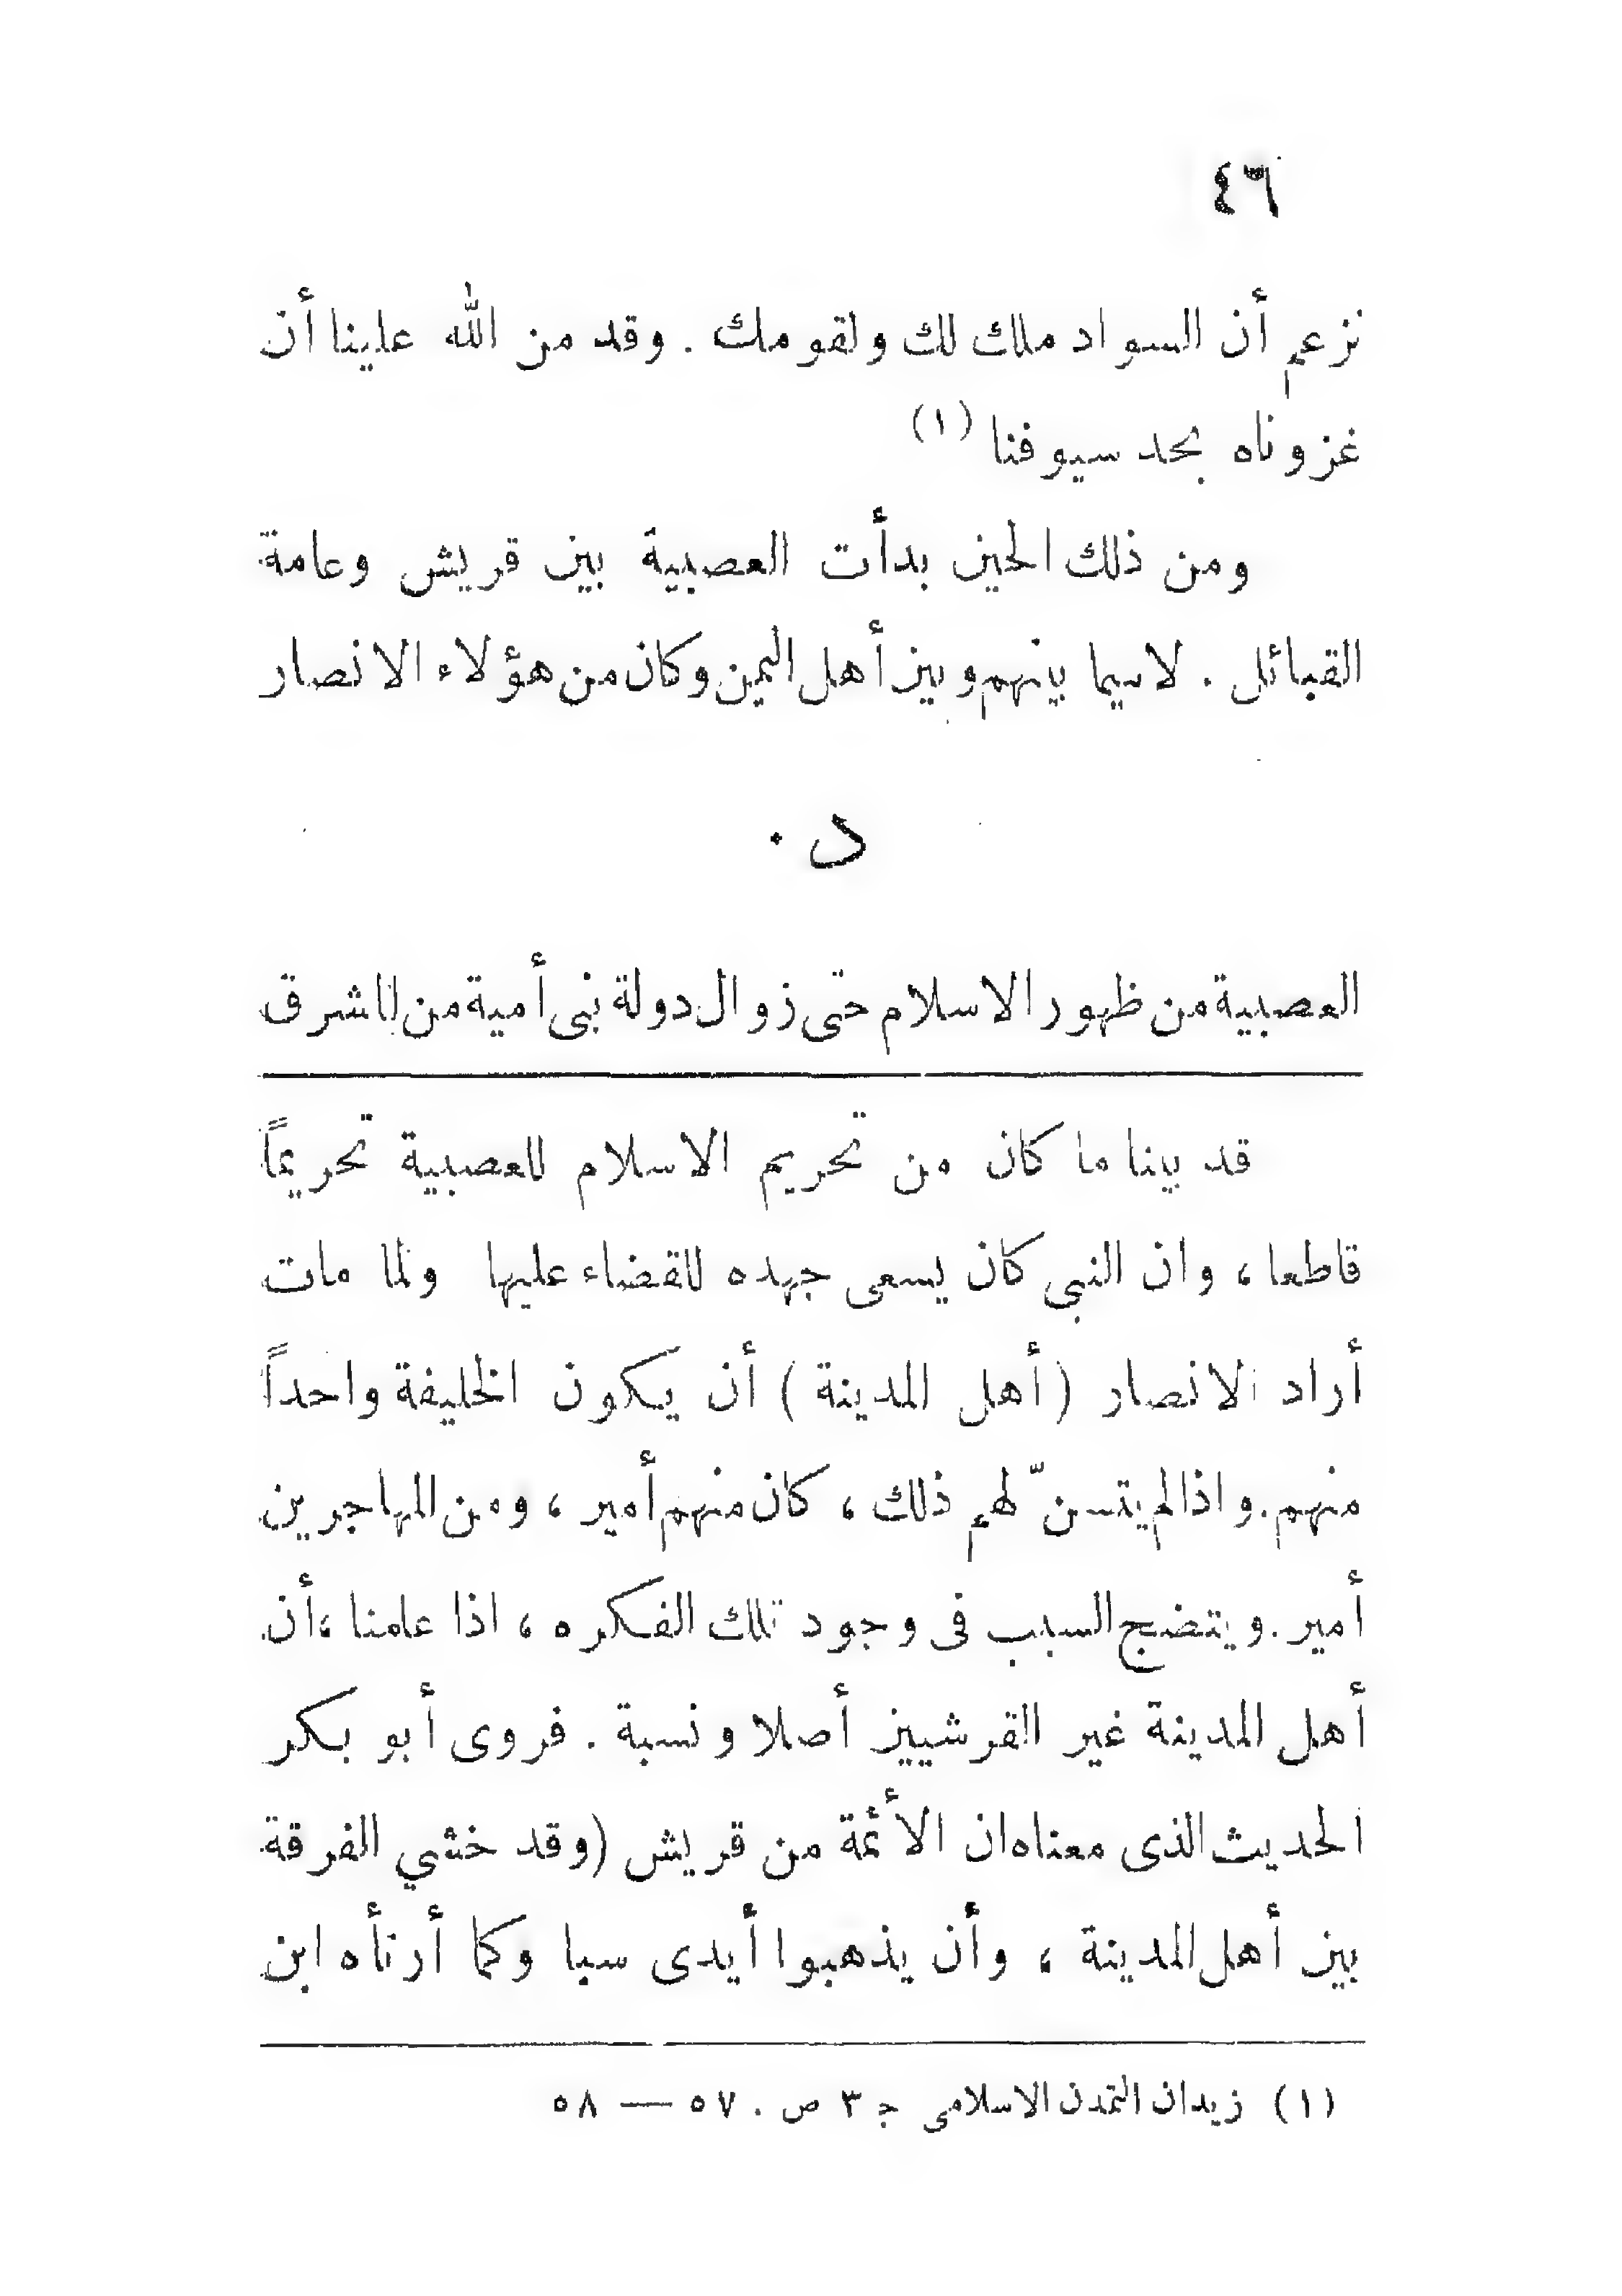 ٤٦
نزعم أن السواد ملك لك ولقومك . وقد من الله علينا أن
غزوناه بحد سيوفنا (١)
ومن ذلك الحين بدأت العصبية بين قريش وعامة
القبائل . لاسيما بينهم وبين أهل اليمن وكان من هؤلاء الانصار
د .
العصبية من ظهور الاسلام حتى زوال دولة بنى أمية من المشرق
قد بينا ما كان من تحريم الاسلام للعصبية تحريماً
قاطعا ، وان النبى كان يسعى جهده للقضاء عليها ولما مات
أراد الانصار ( أهل المدينة ) أن يكون الخليفة واحداً
منهم . واذا لم يتسنّ لهم ذلك ، كان منهم أمير ، ومن المهاجرين
أمير . ويتضح السبب فى وجود تلك الفكره ، اذا علمنا ، أن
أهل المدينة غير القرشيين أصلا ونسبة . فروى أبو بكر
الحديث الذى معناه ان الأئمة من قريش ( وقد خشي الفرقة
بين أهل المدينة ، وأن يذهبوا أيدى سبا وكما أرتأه ابن
(١) زيدان التمدن الاسلامى ج ٣ ص . ٥٧ — ٥٨